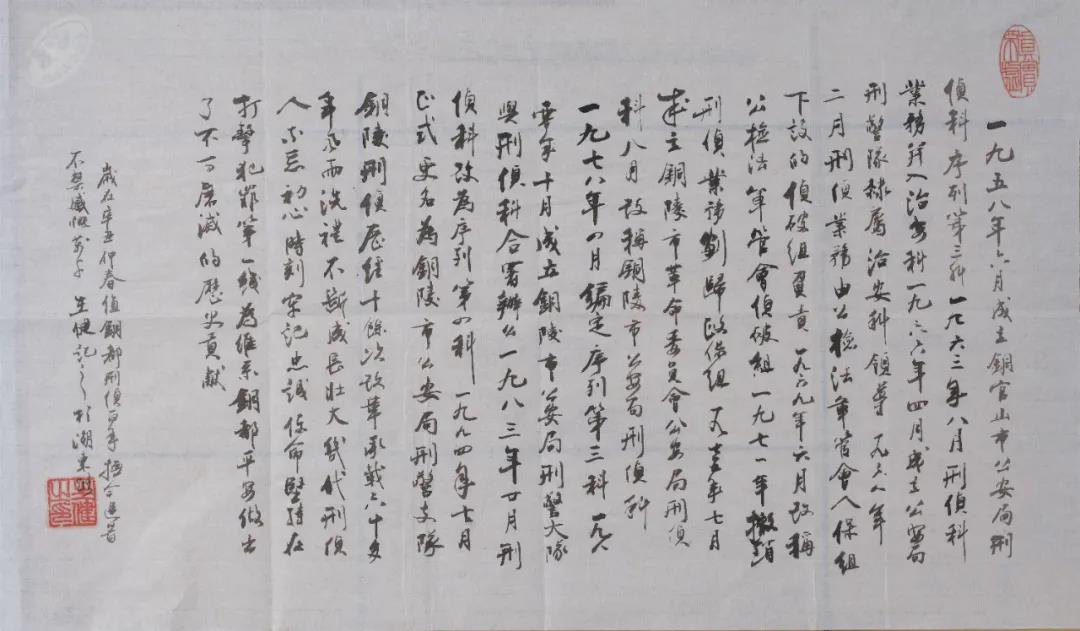 一九五八年六月成立銅官山市公安局刑
偵科序列第三科一九六三年八月刑偵科
業務并入治安科一九六六年四月成立公安局
刑警隊隸屬治安科領導一九六八年
二月刑偵業務由公檢法軍管會人保組
下設的偵破組負責一九六九年六月改稱
公檢法軍管會偵破組一九七一年撤銷
刑偵業務劃歸政保組一九七三年七月
成立銅陵市革命委員會公安局刑偵
科八月改稱銅陵市公安局刑偵科
一九七八年四月編定序列第三科一九八
年十月成立銅陵市公安局刑警大隊
與刑偵科合署辦公一九八三年廿月刑
偵科改為序列第四科一九九四年七月
正式更名為銅陵市公安局刑警支隊
銅陵刑偵歷經十餘次改革承載六十多
年風雨洗禮不斷成長壯大幾代刑偵
人不忘初心時刻牢記忠誠使命堅持在
打擊犯罪第一線為維系銅都平安做出
了不可磨滅的歷史貢獻
歲在辛丑仲春值銅都刑偵
不禁感慨萬千 生健記之於湖東